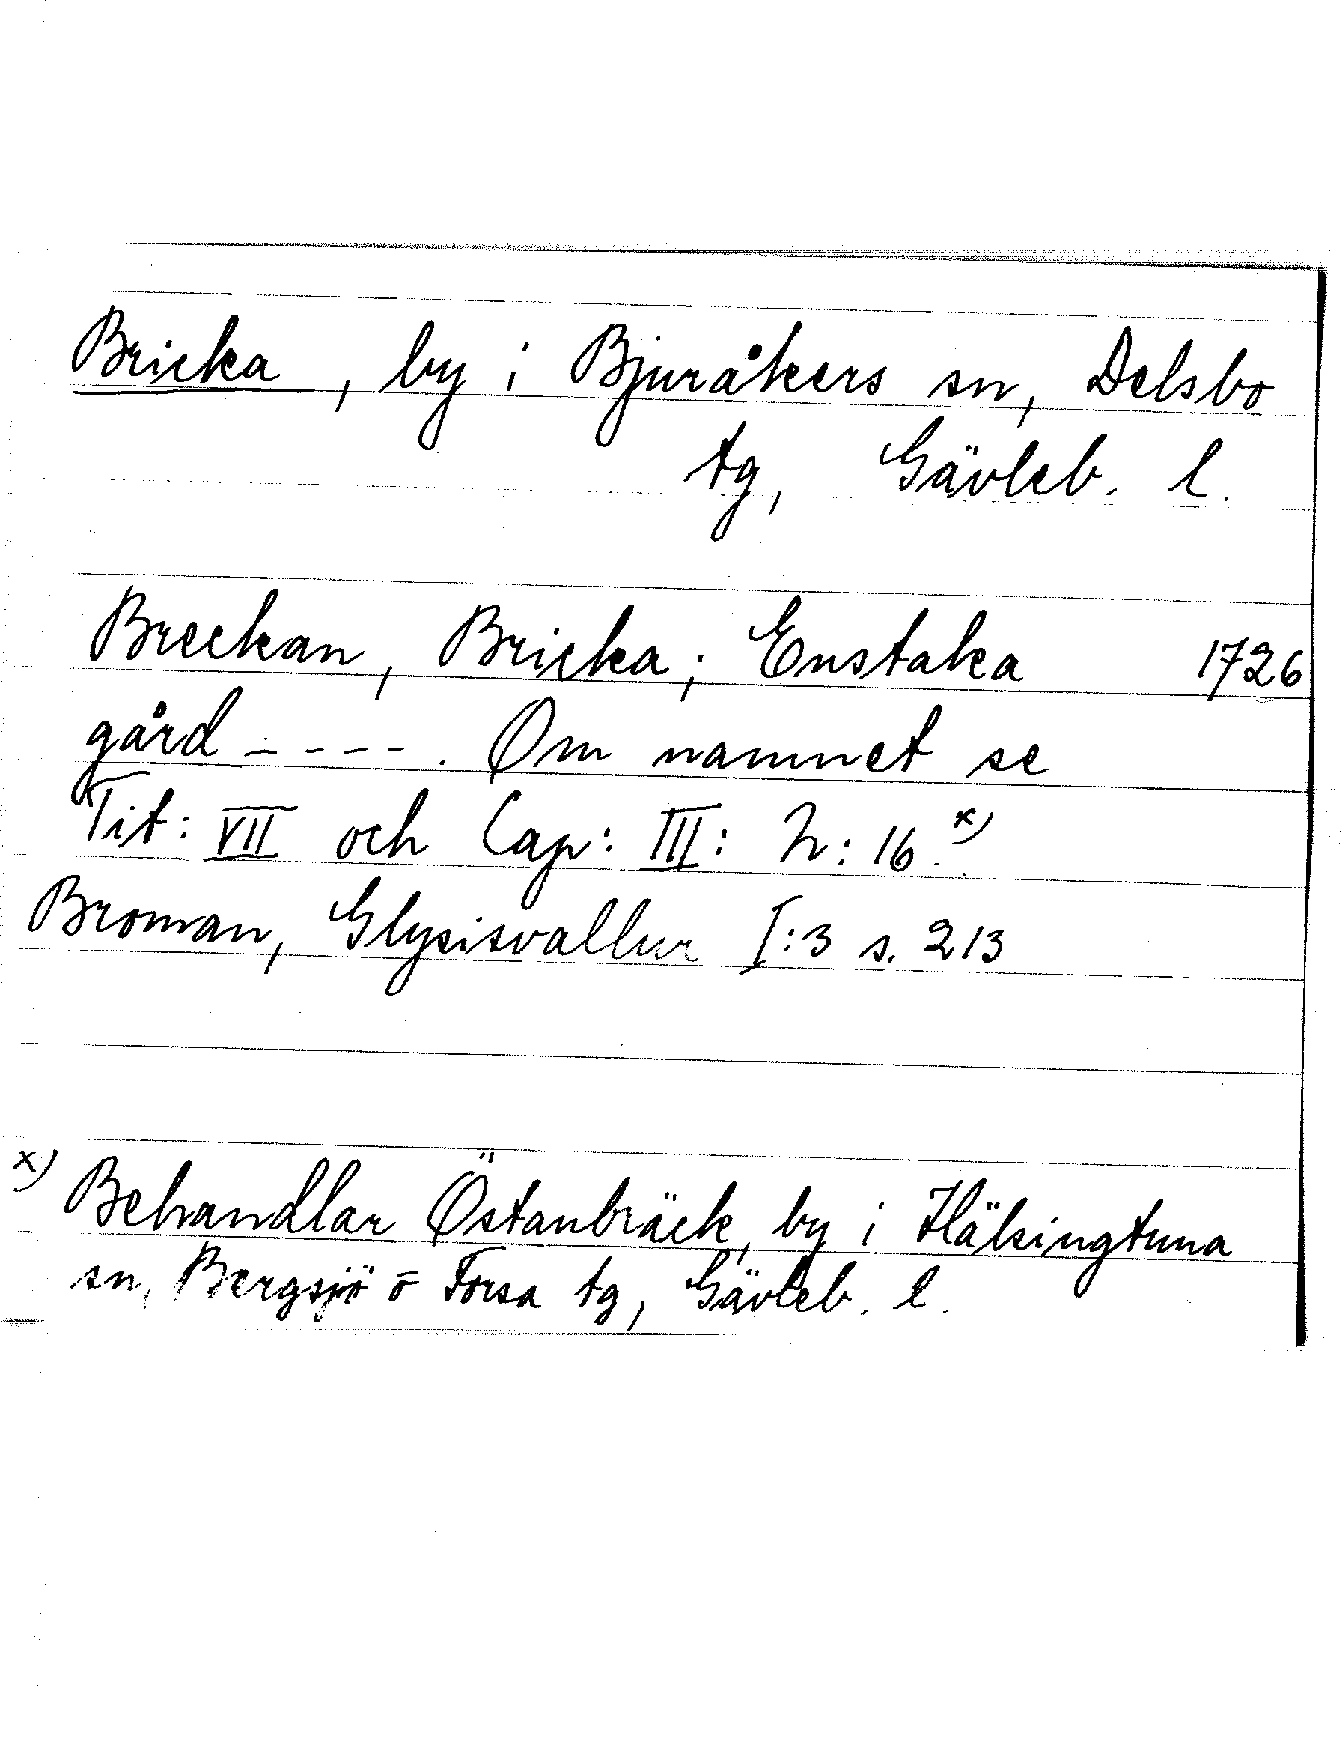 Bricka, by i Bjuråkers sn, Delsbo
tg, Gävleb. l.
Breckan, Bricka; Enstaka 1726
gård ----. Om namnet se
Tit: VII och Cap: III: N: 16.x)
Broman, Glysisvallur I:3 s. 213
x) Behandlar Östanbräck, by i Hälsingtuna
sn, Bergsjö o Forsa tg, Gävleb. l.